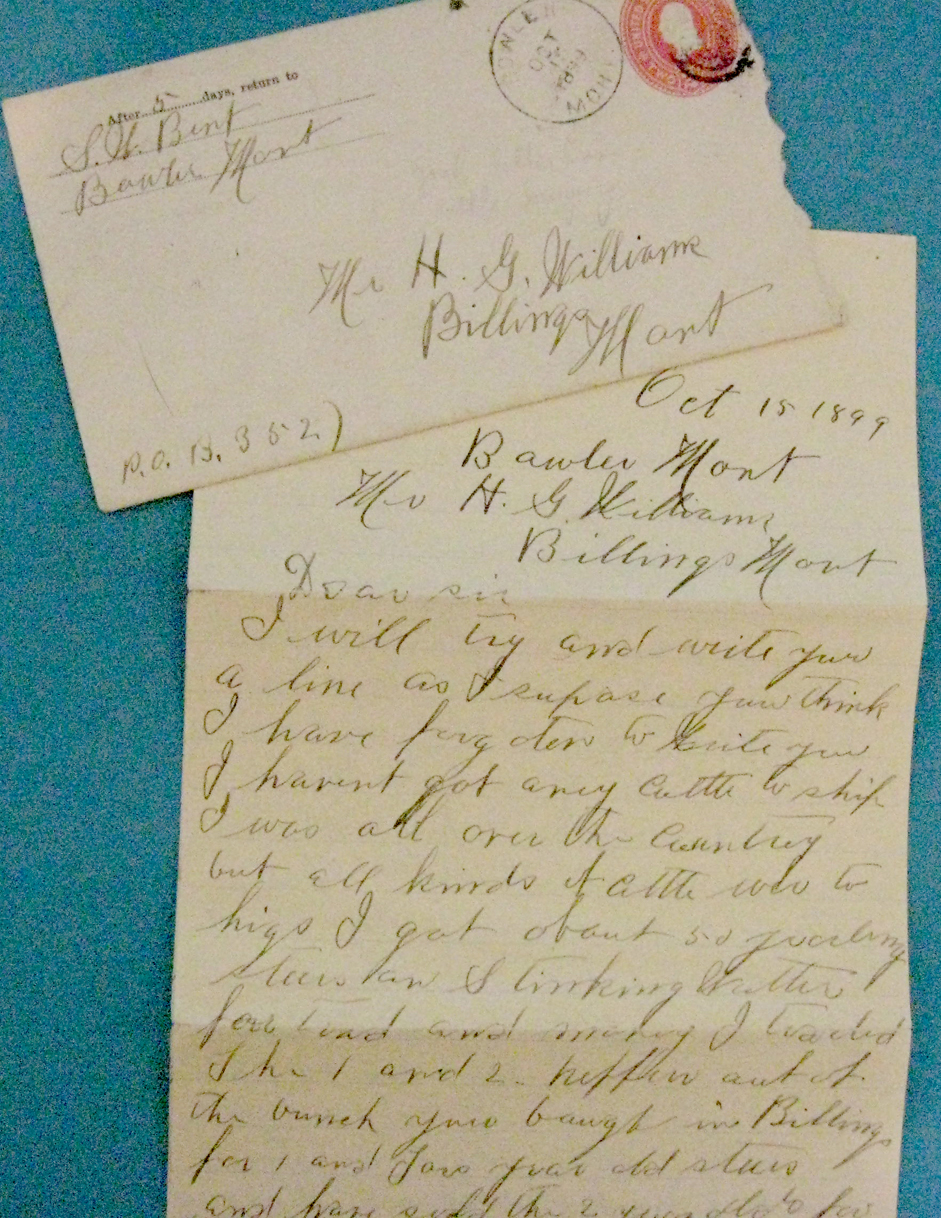 After 5 days, return to
S. W. Bent
Bowler Mont
BOWLER
OCT
1899
MONT
UNITED
Mr H. G. Williams
Billings Mont
P.O. B. 352)
Oct 15 1899
Bowler Mont
Mr H. G. Williams
Billings Mont
Dear sir
I will try and write you
a line as I supose you think
I have forgoten to write you
I havent got any Cattle to ship
I was all over the Country
but all kinds of Cattle wer to
higs I got about 50 yearling
steers on Stinking Watter
for trad and money I traded
the 1 and 2 heffers out of
the bunch you baugh in Billings
for 1 and two year old steers
and have sold the 2 year olds for